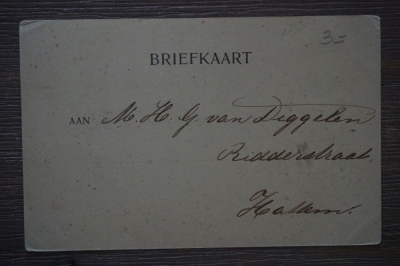 3=
BRIEFKAART
AAN M. H. G. van Diggelen
Ridderstraat
Hattem.